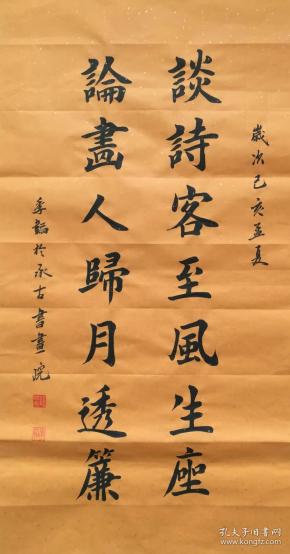 歲次己亥孟夏
談詩客至風生座
論畫人歸月透簾
於承古書畫院
孔夫子旧书网